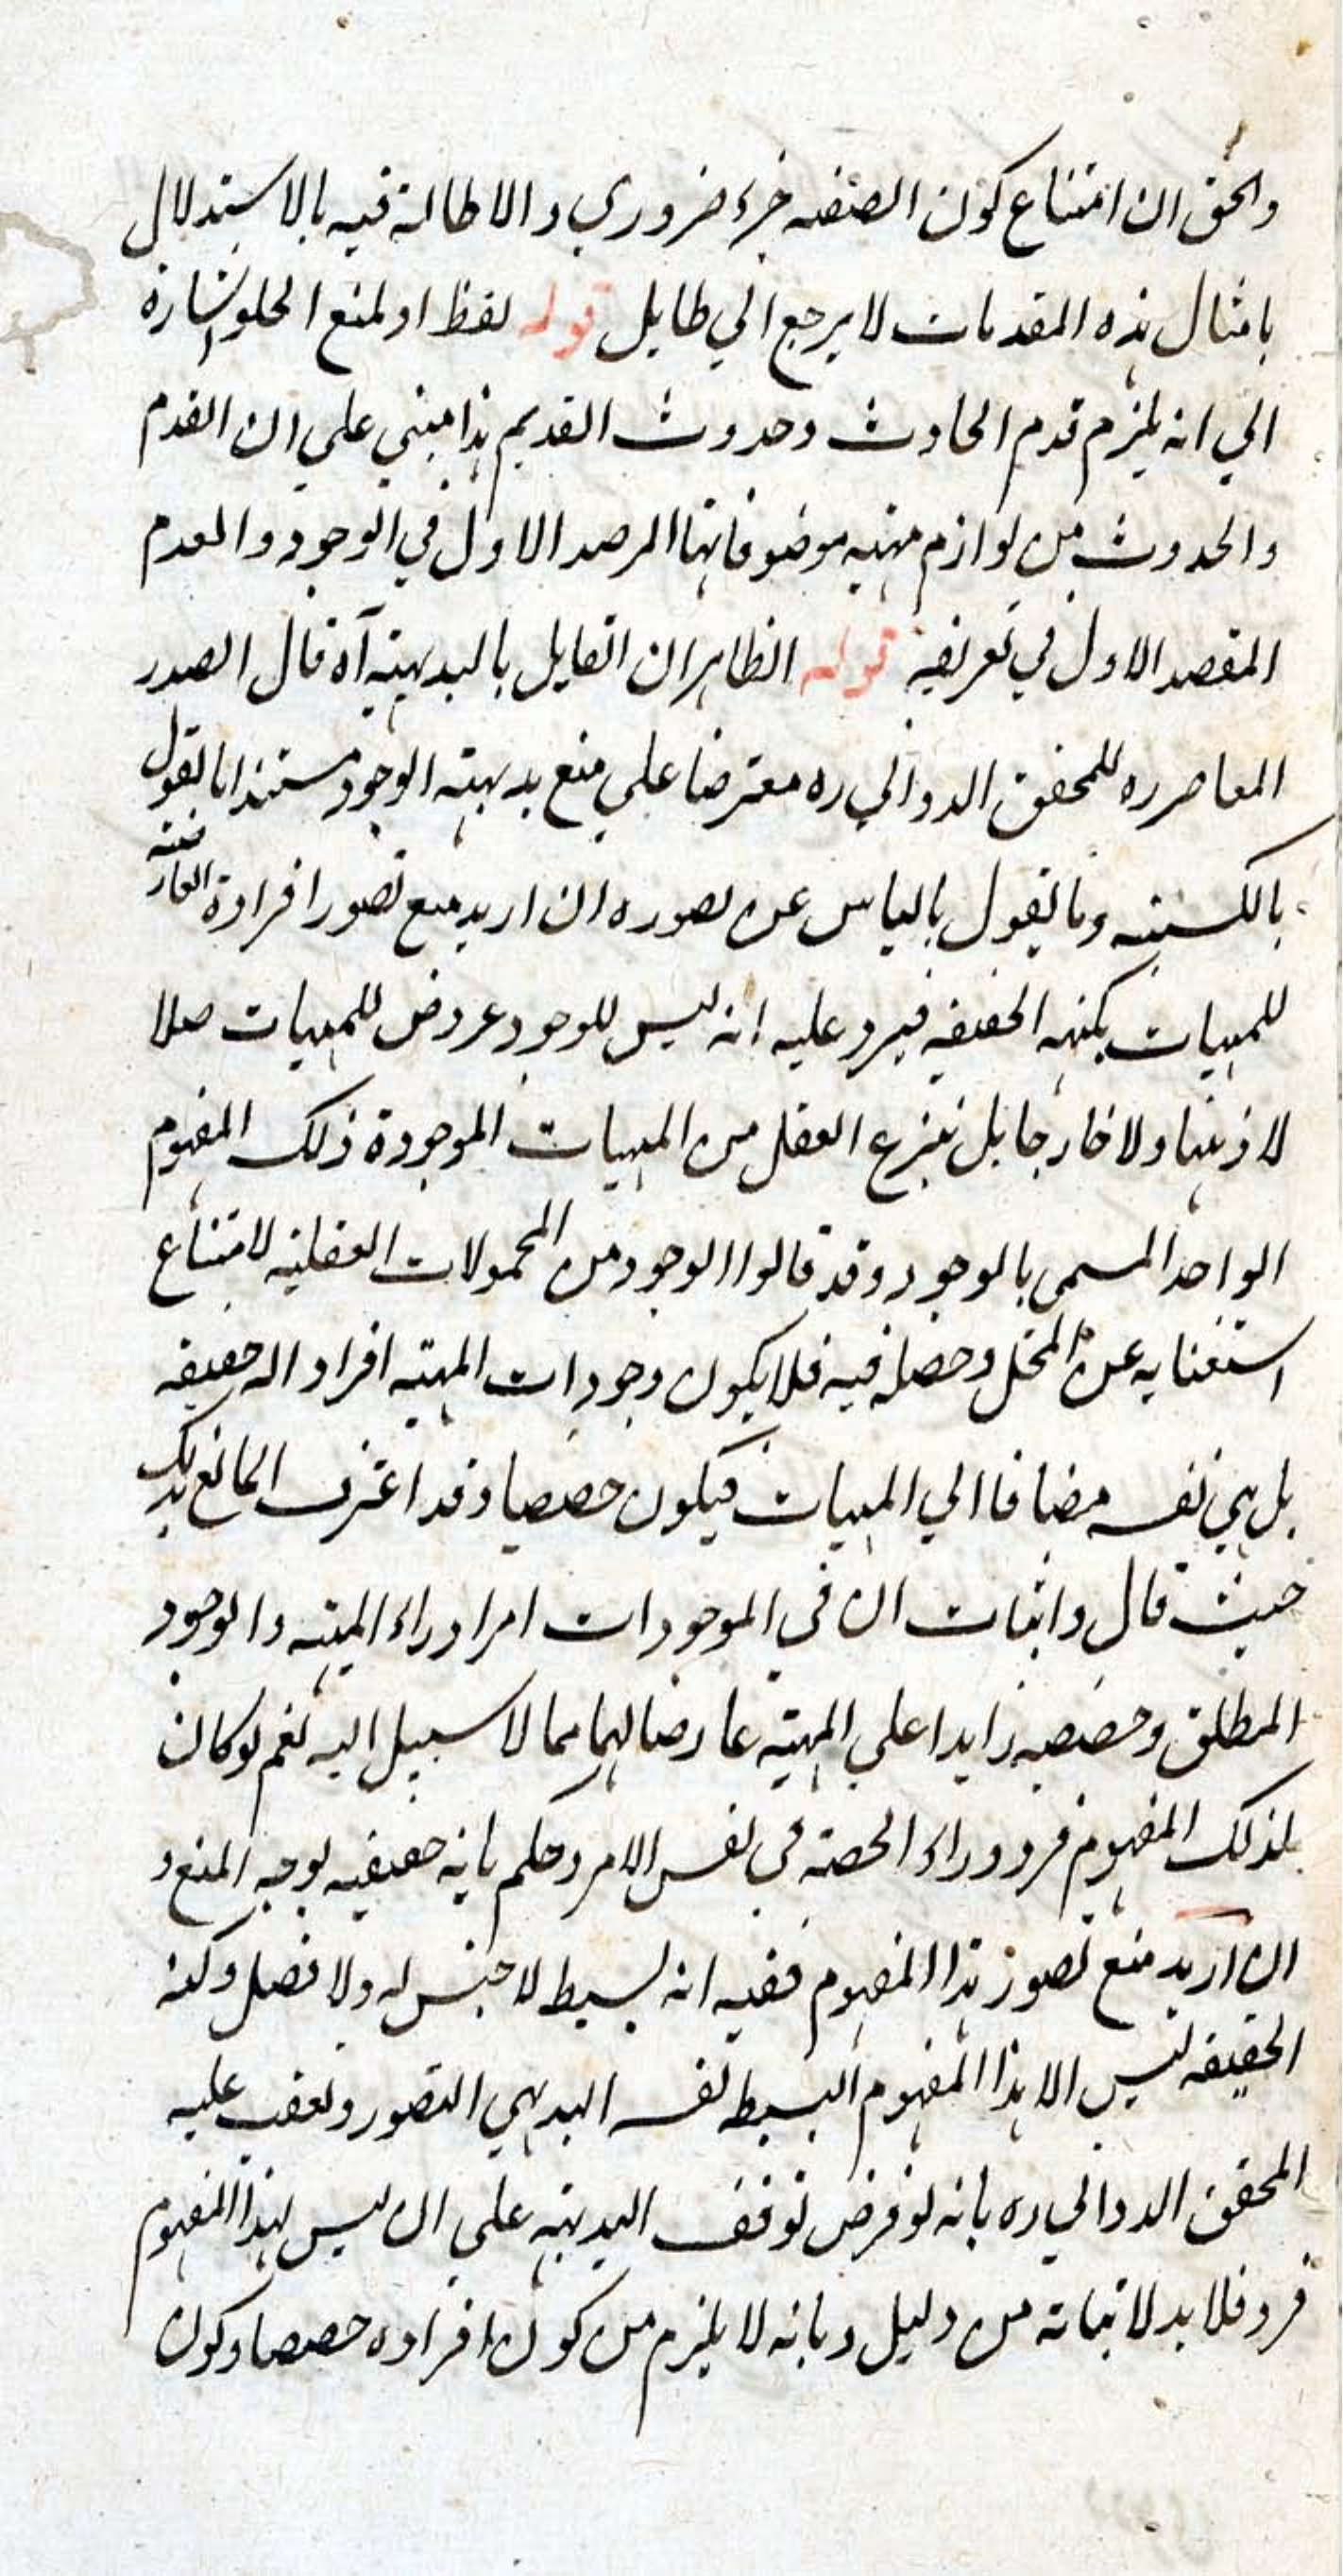 والحق ان امتناع كون الصفة جزء ضروري والاطالة فيه بالاستدلال
بامثال هذه المقدمات لا يرجع الي طايل قوله لفظ او لمنع الخلو اشارة
الي انه يلزم قدم الحادث وحدوث القديم هذا مبني علي ان القدم
والحدوث من لوازم مهية موضوفاتها المرصد الاول في الوجود والعدم
المقصد الاول في تعريفه قوله الظاهر ان القايل بالبديهية آه قال الصدر
المعاصر ره للمحقق الدواني ره معترضا علي منع بديهية الوجود مستندا بالقول
بالكسبية وبالقول بالياس عن تصوره ان اريد منع تصور افراده العارضة
للمهيات بكنهه الحقيقة فيرد عليه انه ليس للوجود عروض للمهيات اصلا
لا ذهنا ولا خارجا بل ينزع العقل من المهيات الموجودة ذلك المفهوم
الواحد المسمي بالوجود وقد قالوا الوجود من المحمولات العقلية لامتناع
استغنايه عن المحل وحصله فيه فلا يكون وجودات المهية افرادا له حقيقة
بل هي نفسه مضافا الي المهيات فيكون حصصا وقد اعترف المانع بذلك
حيث قال واثبات ان في الموجودات امرا وراء المهية والوجود
المطلق وحصصه زايدا علي المهية عارضا لها مما لا سبيل اليه نعم لو كان
لذلك المفهوم فرد وراء الحصة في نفس الامر وحكم بانه حقيقية لوجه المنع و
ان اريد منع تصور هذا المفهوم ففيه انه بسيط لا جنس له ولا فصل وكنه
الحقيقة ليس الا هذا المفهوم البسيط نفسه البديهي التصور وتعقب عليه
المحقق الدواني ره بانه لو فرض توقف البديهية علي ان ليس لهذا المفهوم
فرد فلا بد لاثباته من دليل وبانه لا يلزم من كون افراده حصصا وكون